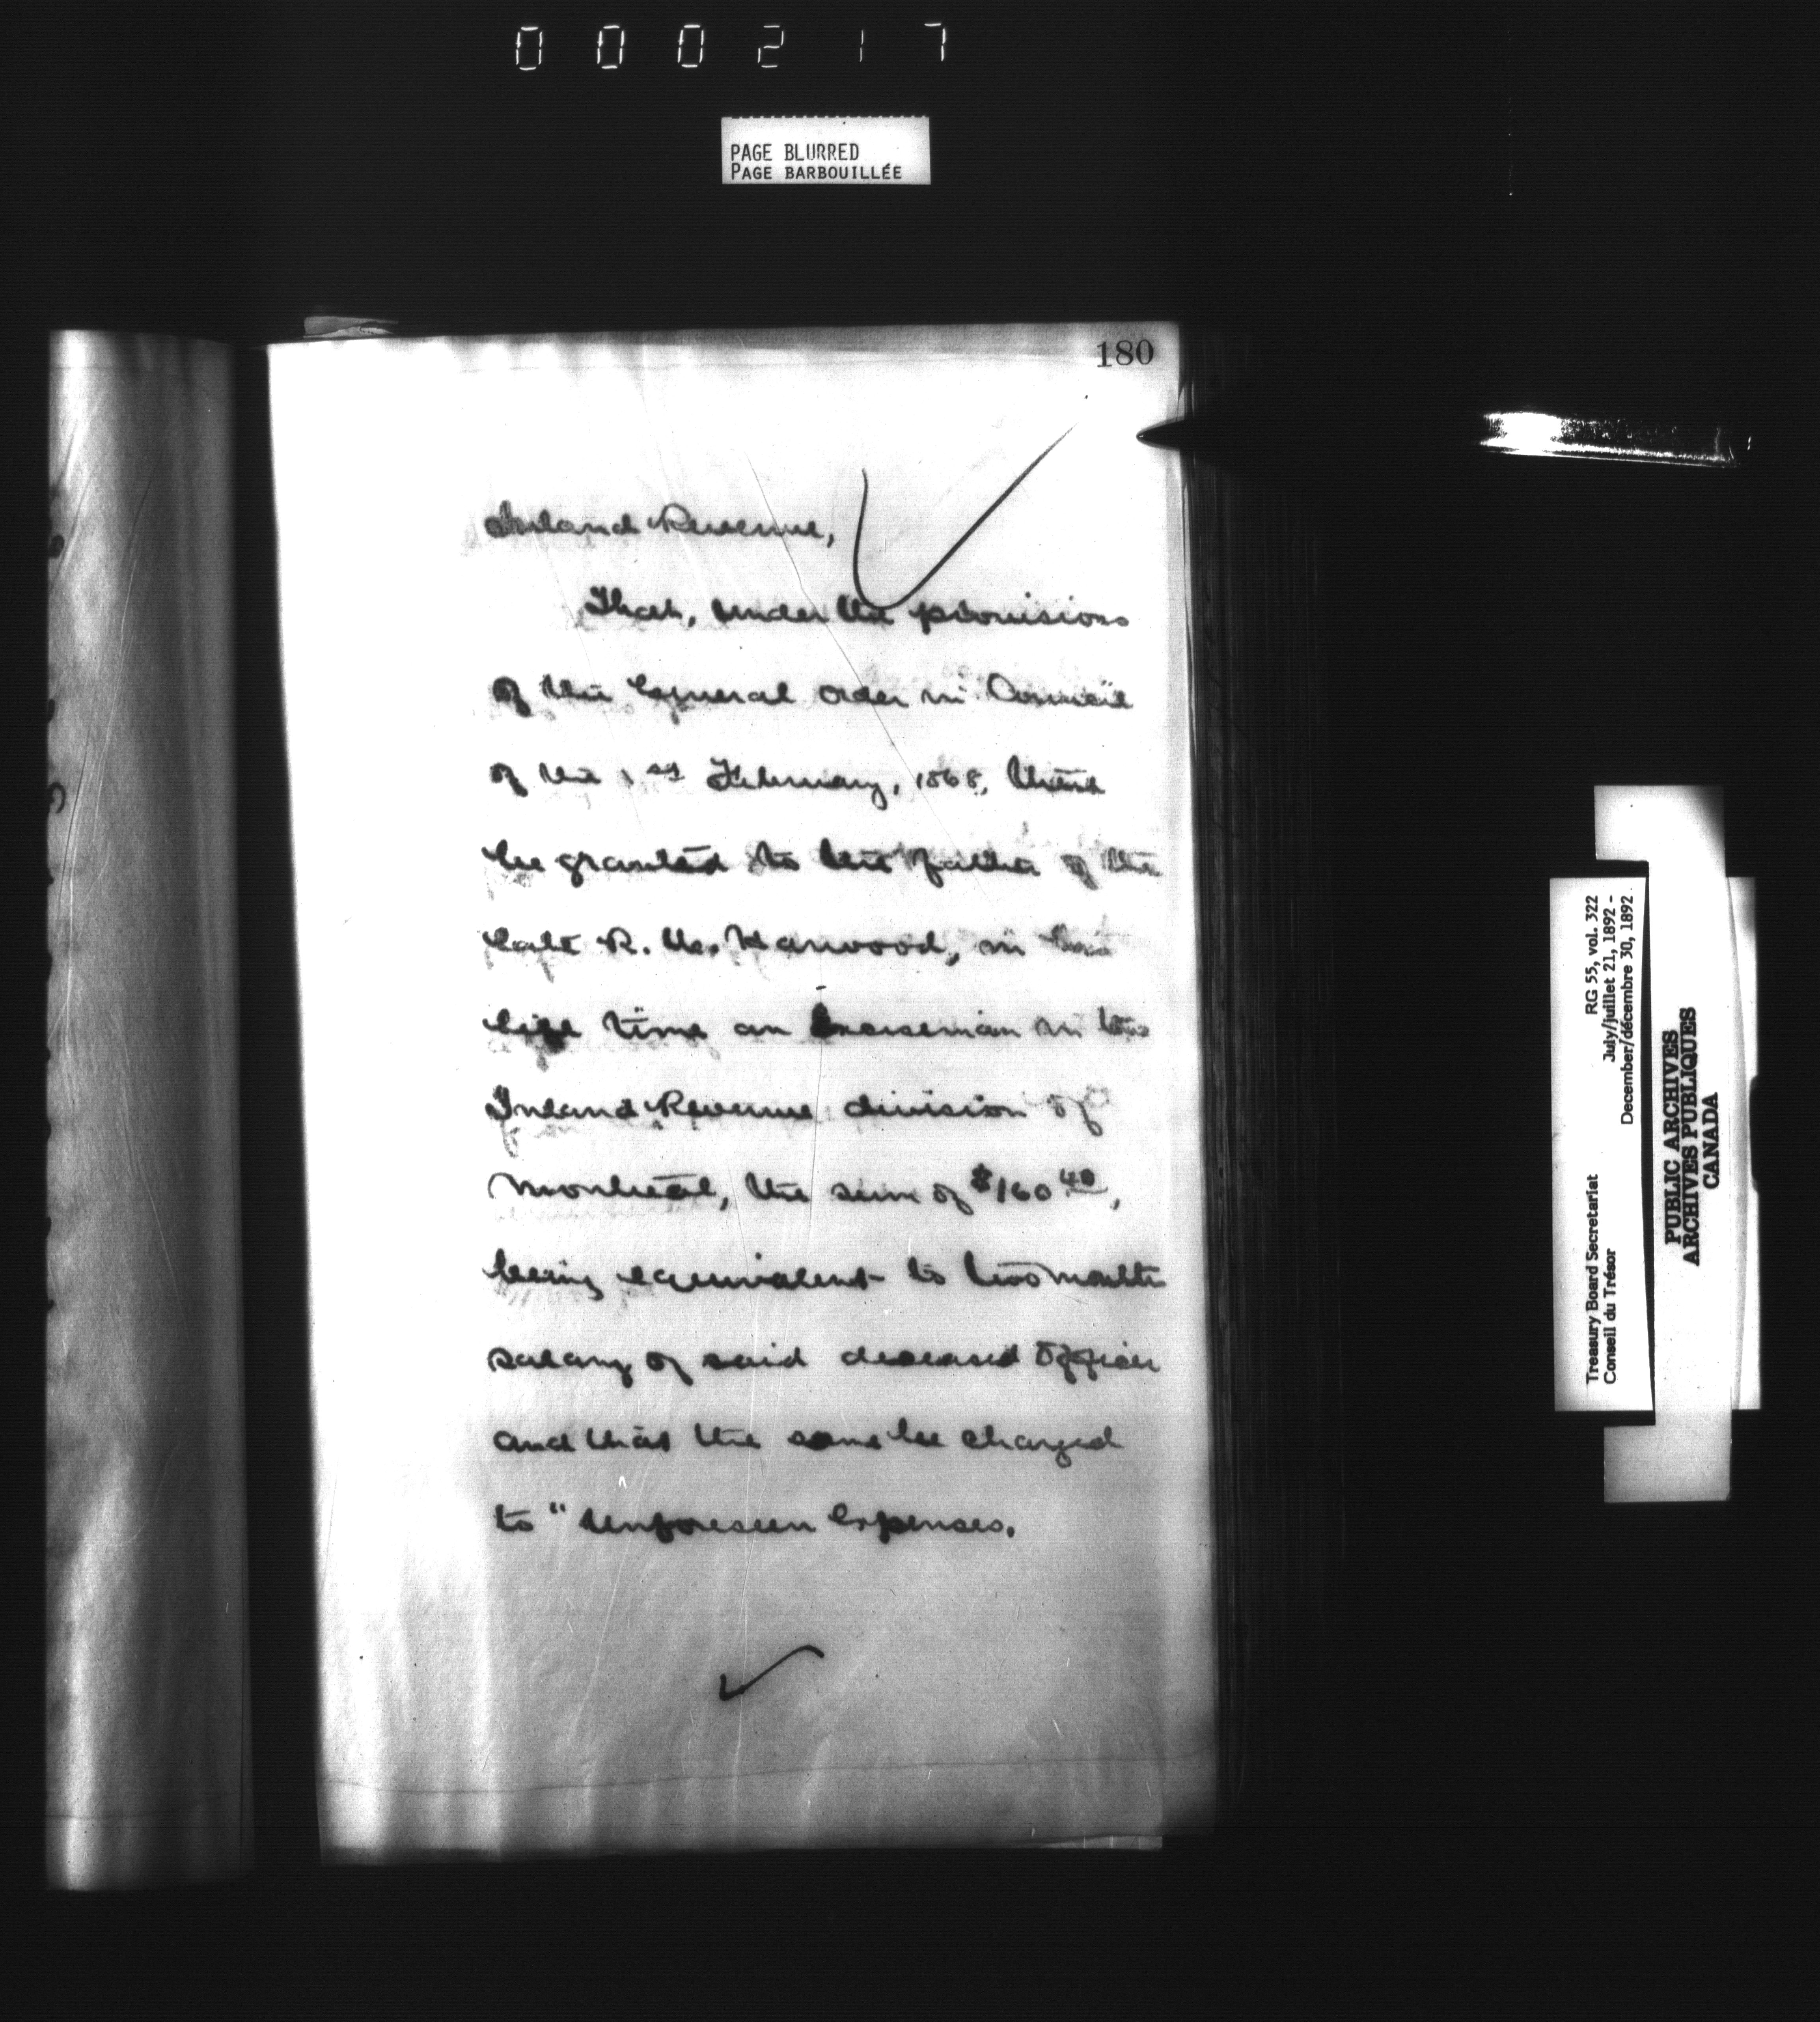 000217
PAGE BLURRED
PAGE BARBOUILLÉE
180
Inland Revenue,
That, under the provisions
of the General order in Council
of the 1st February, 1868, there
be granted to the father of the
late R. Harwood, in his
life time an Exciseman in the
Inland Revenue division of
Montreal, the sum of $160.40,
being equivalent to two months
salary of said deceased officer
and that the same be charged
to " Unforeseen Expenses.
Treasury Board Secretariat RG 55, vol. 322
Conseil du Trésor July/juillet 21, 1892 -
December/décembre 30, 1892
PUBLIC ARCHIVES
ARCHIVES PUBLIQUES
CANADA